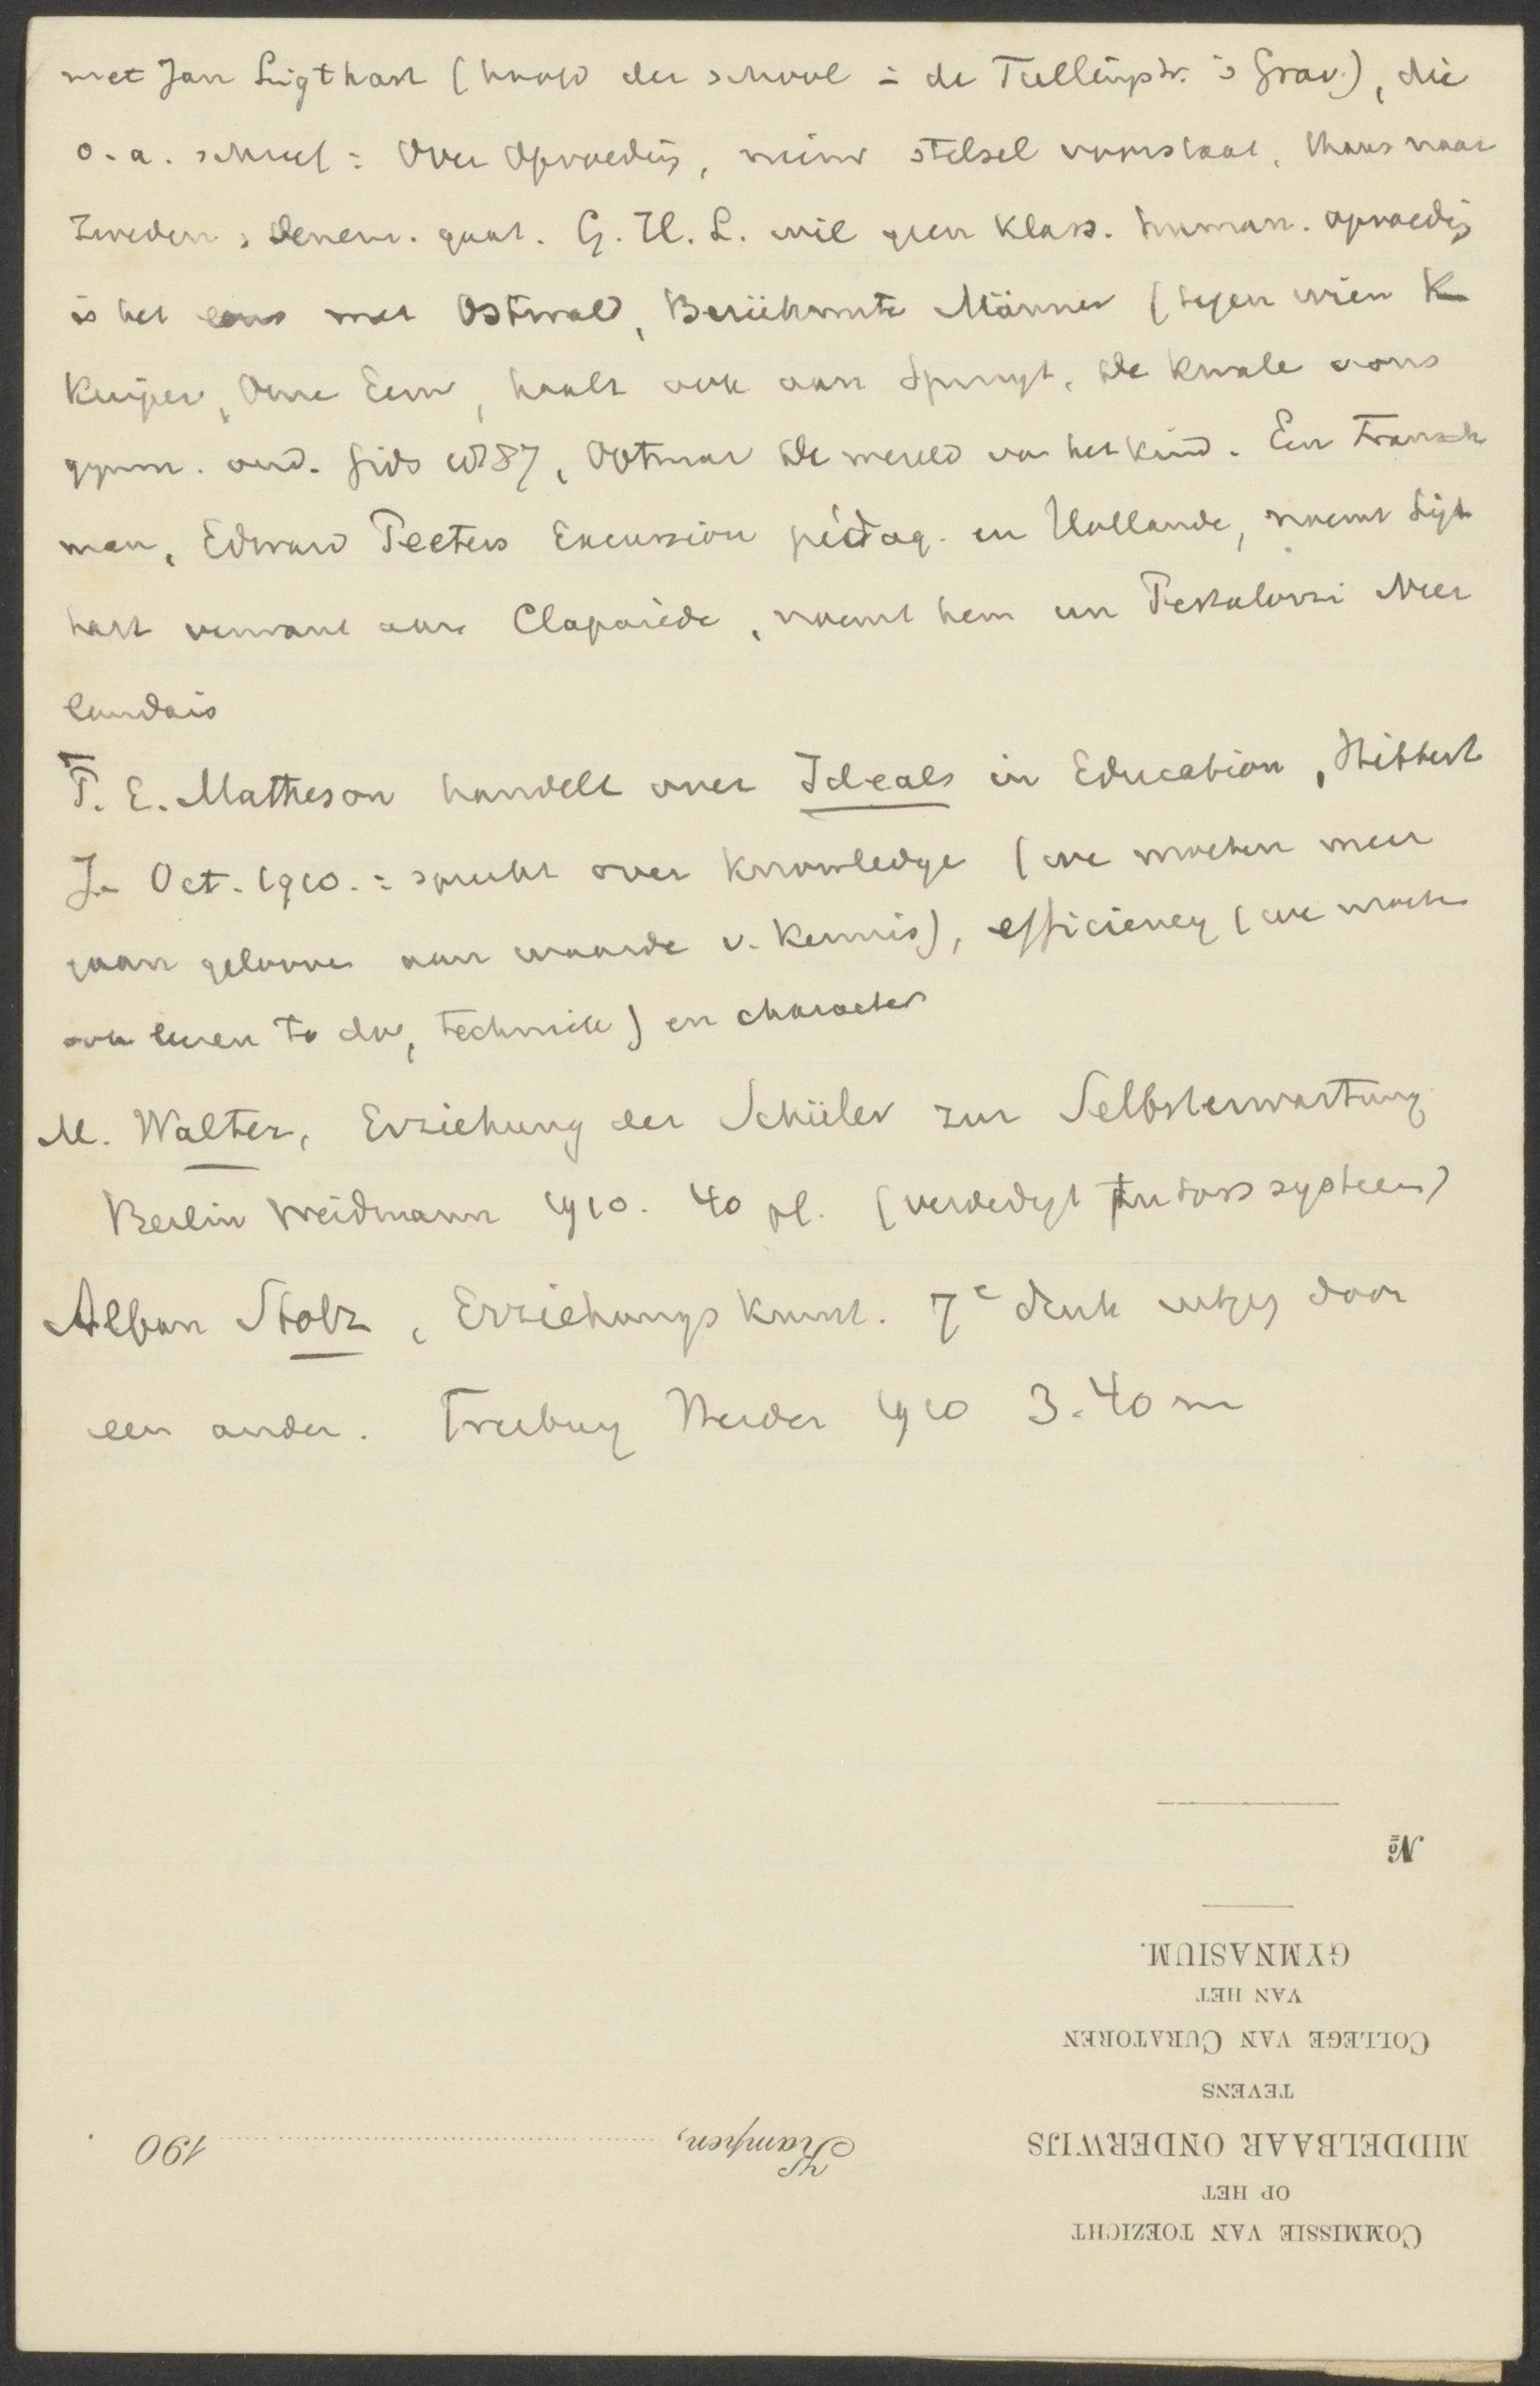 met Jan Ligthart (hoofd der school in de Tullingstr. 's Grav.), die
o.a. schreef: Over Opvoeding, nieuw stelsel voorstaat, thans naar
Zweden, Denem. gaat. G. H. L. wil geen klass. human. opvoedig
is het eens met Ostwald, Berühmte Männer (tegen wien
Kuijper, Onze Eeuw, haalt ook aan Spruyt, de kwale vons
gymn. ond. Gids 1887, Ootmar De wereld van het kind. Een Fransch
man, Edward Peeters Excursion pédag. en Hollande, noemt Ligt
hart verwant aan Claparède, noemt hem un Pestalozzi Neer
landais
T. E. Matheson handelt over Ideals in Education, Hibbert
J. Oct. 1910.: spreekt over knowledge (we moeten meer
gaan gelooven aan waarde v. kennis), efficiency (we moeten
ook leeren to do, techniek) en character
M. Walter, Erziehung der Schüler zur Selbsterwartung
Berlin Weidmann 1910. 40 pf. (verdedigt systeem)
Alban Stolz, Erziehungskunst. 7e druk uitgeg door
een ander. Freiburg Herder 1910 3.40 m
Commissie van toezicht
op het
MIDDELBAAR ONDERWIJS
tevens
College van Curatoren
van het
GYMNASIUM.
№
Kampen, 190